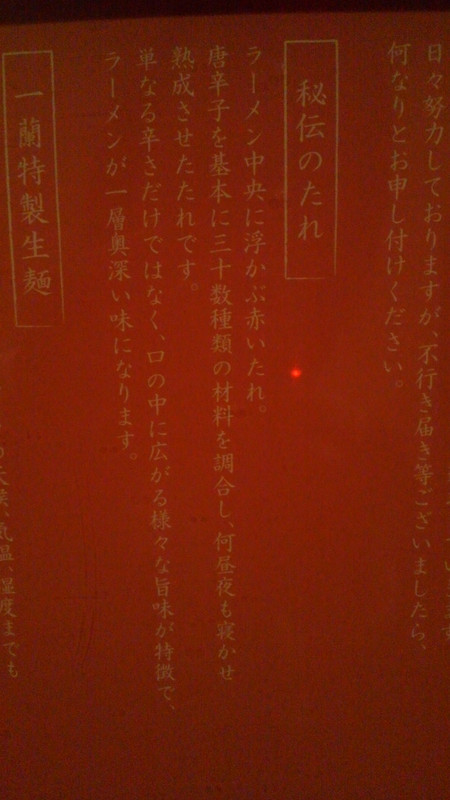 日々努力しておりますが、不行き届き等ございましたら、
何なりとお申し付けください。
秘伝のたれ
ラーメン中央に浮かぶ赤いたれ。
唐辛子を基本に三十数種類の材料を調合し、何昼夜も寝かせ
熟成させたたれです。
単なる辛さだけではなく、口の中に広がる様々な旨味が特徴で、
ラーメンが一層奥深い味になります。
一蘭特製生麺
天候、気温、湿度までも